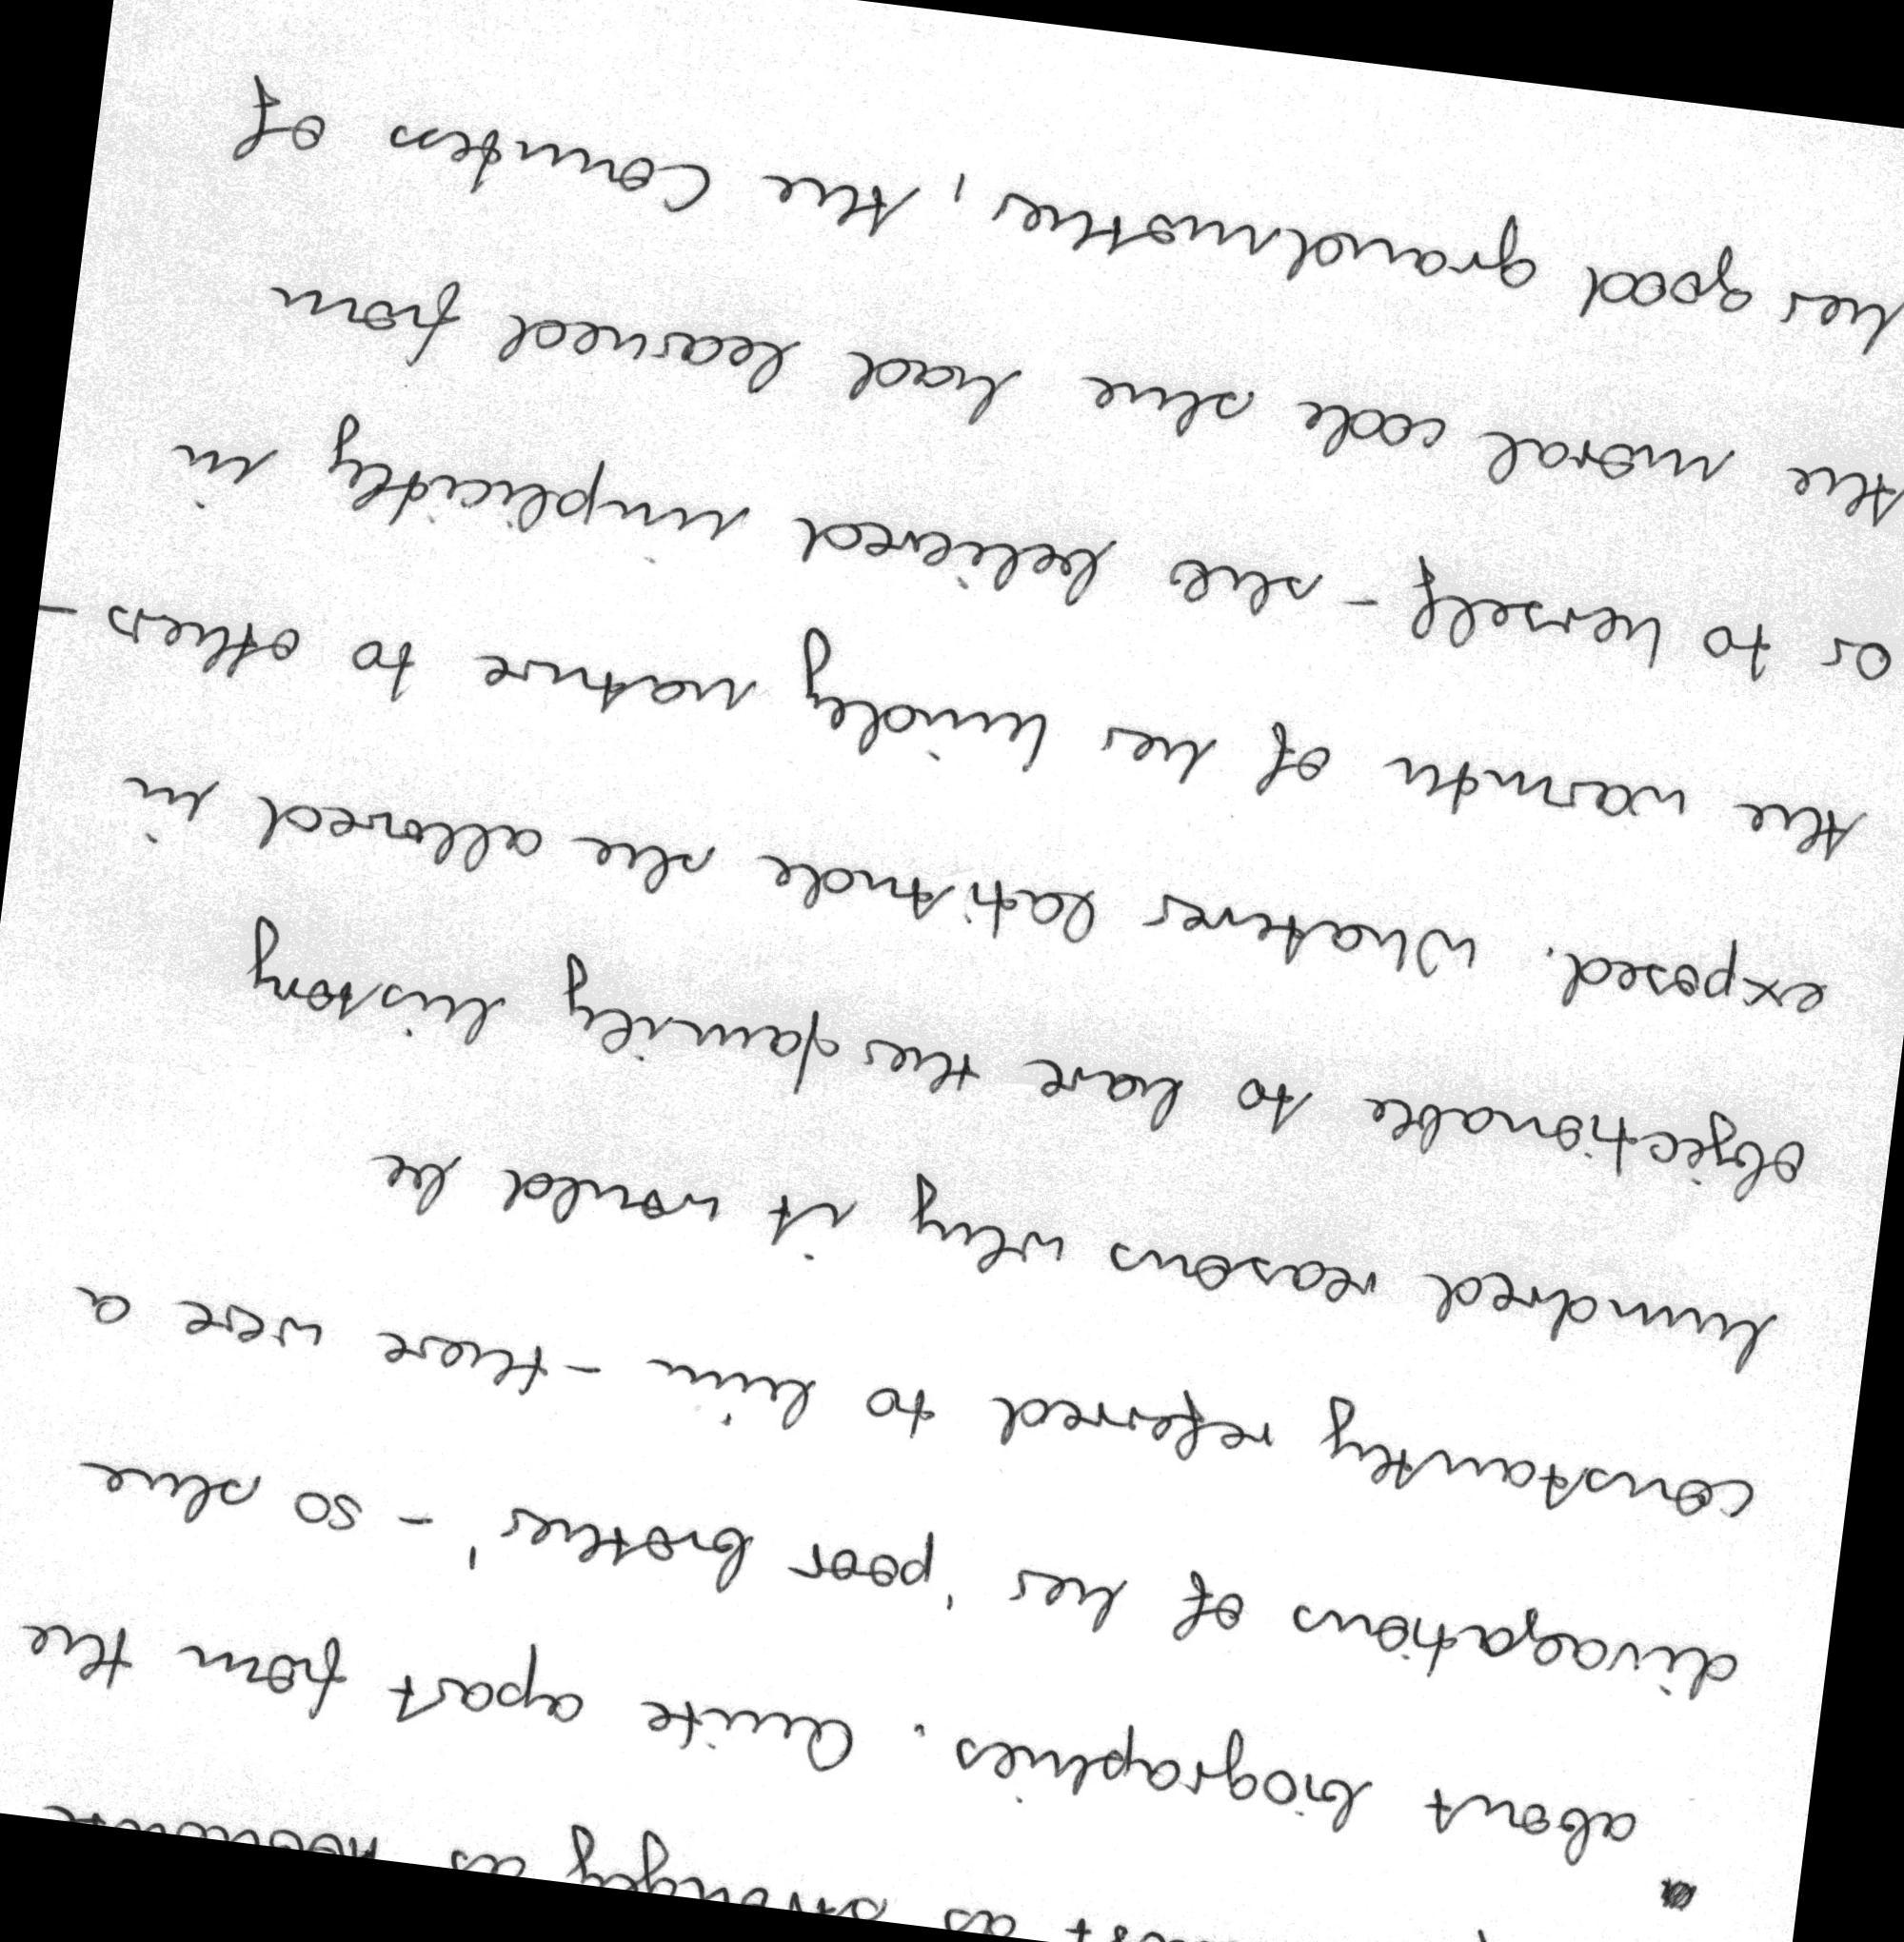 as strongly as
about biographies. Quite apart from the
divagations of her 'poor brother' - so she
constantly referred to him - there were a
hundred reasons why it would be
objectionable to have the family history
exposed. Whatever latitude she allowed in
the warmth of her kindly nature to others -
or to herself - she believed implicitly in
the moral code she had learned from
her good grandmother, the Countess of